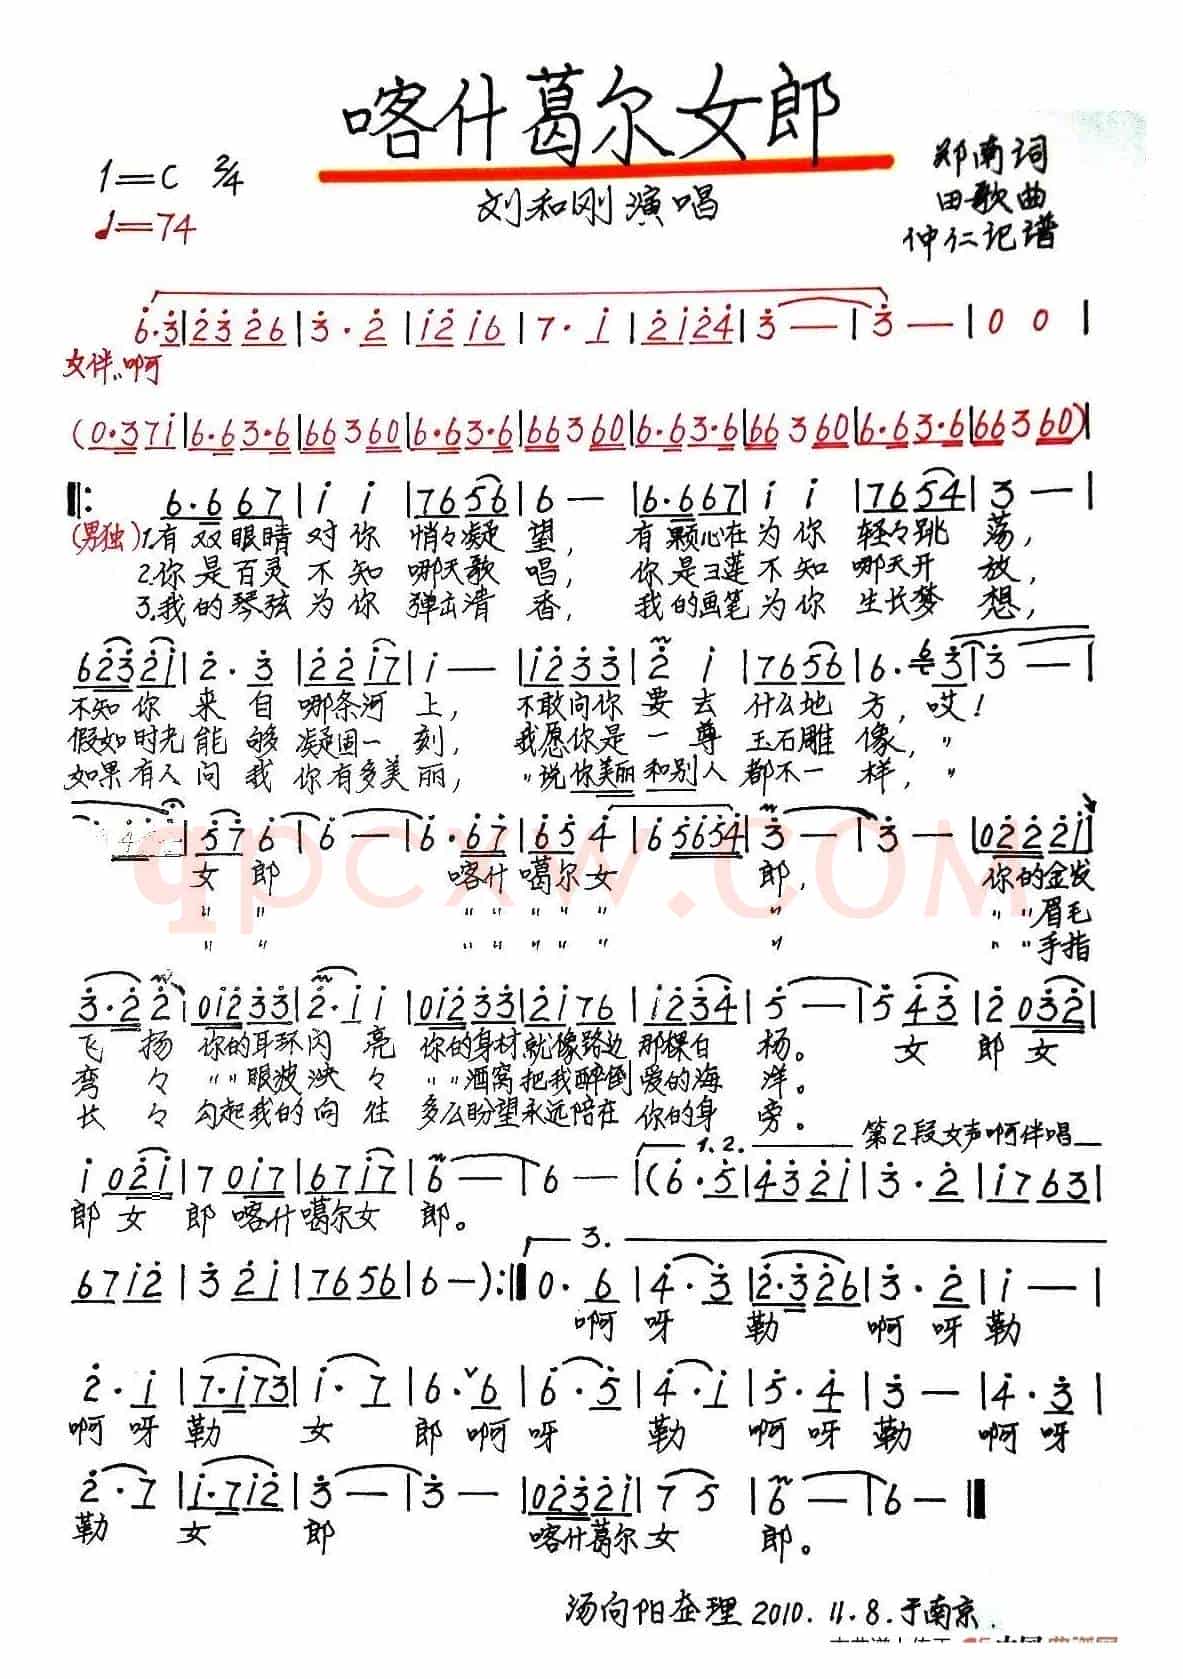 喀什葛尔女郎
1=C 2/4
♩=74
刘和刚演唱
郑南词
田歌曲
仲仁记谱
6·3|23 26|3·2|12 16|7·1|21 24|3—|3—|0 0|
女伴..啊
(0·3 71|6·6 3·6|66 3 60|6·6 3·6|66 3 60|6·6 3·6|66 3 60|6·6 3·6|66 3 60)|
‖: 6·6 67|1 1|76 56|6—|6·6 67|1 1|76 54|3—|
(男独)1.有双眼睛对你悄々凝望,有颗心在为你轻々跳荡,
2.你是百灵不知哪天歌唱,你是雪莲不知哪天开放,
3.我的琴弦为你弹出清香,我的画笔为你生长梦想,
6 23 21|2·3|22 17|1—|12 33|2 1|76 56|6·6 3|3—|
不知你来自哪条河上,不敢问你要去什么地方,哎!
假如时光能够凝固一刻,我愿你是一尊玉石雕像,〃
如果有人问我你有多美丽,〃说你美丽和别人都不一样,〃
4—|57 6|6—|6·67|65 4|6 5654|3—|3—|02 22 1|
女郎 喀什噶尔女郎, 你的金发
〃 〃 〃 〃 〃 〃 〃 〃 〃 〃眉毛
〃 〃 〃 〃 〃 〃 〃 〃 〃 〃手指
3·2 2|01 23 3|2·1 1|01 23 3|21 76|12 34|5—|5 43|2 03 2|
飞扬 你的耳环闪亮 你的身材就像路边那棵白杨。 女郎女
弯々 〃〃眼波泱々 〃〃酒窝把我醉倒爱的海洋。
长々 勾起我的向往 多么盼望永远陪在你的身旁。
1.2. 第2段女声啊伴唱
1 02 1|7 01 7|67 17|6—|6—|(6·5|43 21|3·2|17 63|
郎女郎喀什噶尔女郎。
3.
67 12|3 21|76 56|6—):‖0·6|4·3|2·3 26|3·2|1—|
啊呀勒 啊呀勒
2·1|7·1 73|1·7|6·6|6·5|4·1|5·4|3—|4·3|
啊呀勒女郎啊呀勒啊呀勒啊呀
2·7|1·7 12|3—|3—|02 32 1|7 5|6—|6—‖
勒女郎 喀什葛尔女郎。
汤向阳整理 2010.11.8.于南京.
qpcxw.com